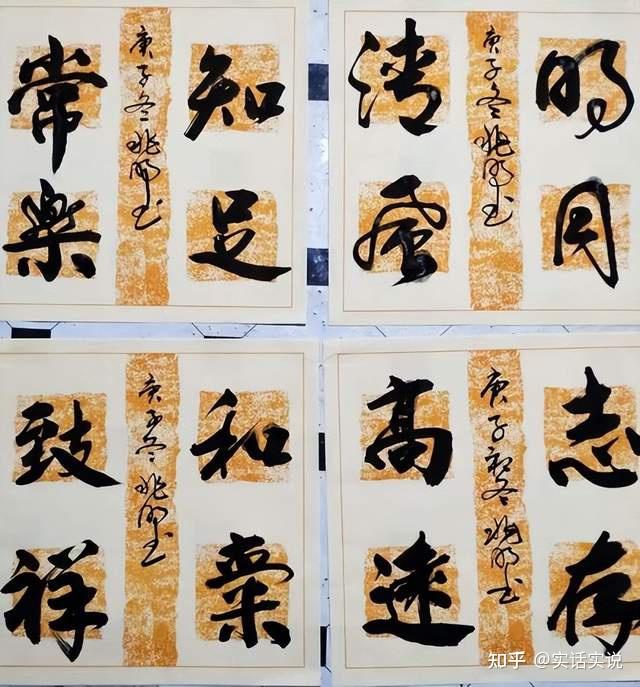 知足
常樂
庚子冬兆明书
明月
清风
庚子冬兆明书
和
致祥
庚子冬兆明书
志存
高遠
庚子初冬兆明书
知乎 @实话实说